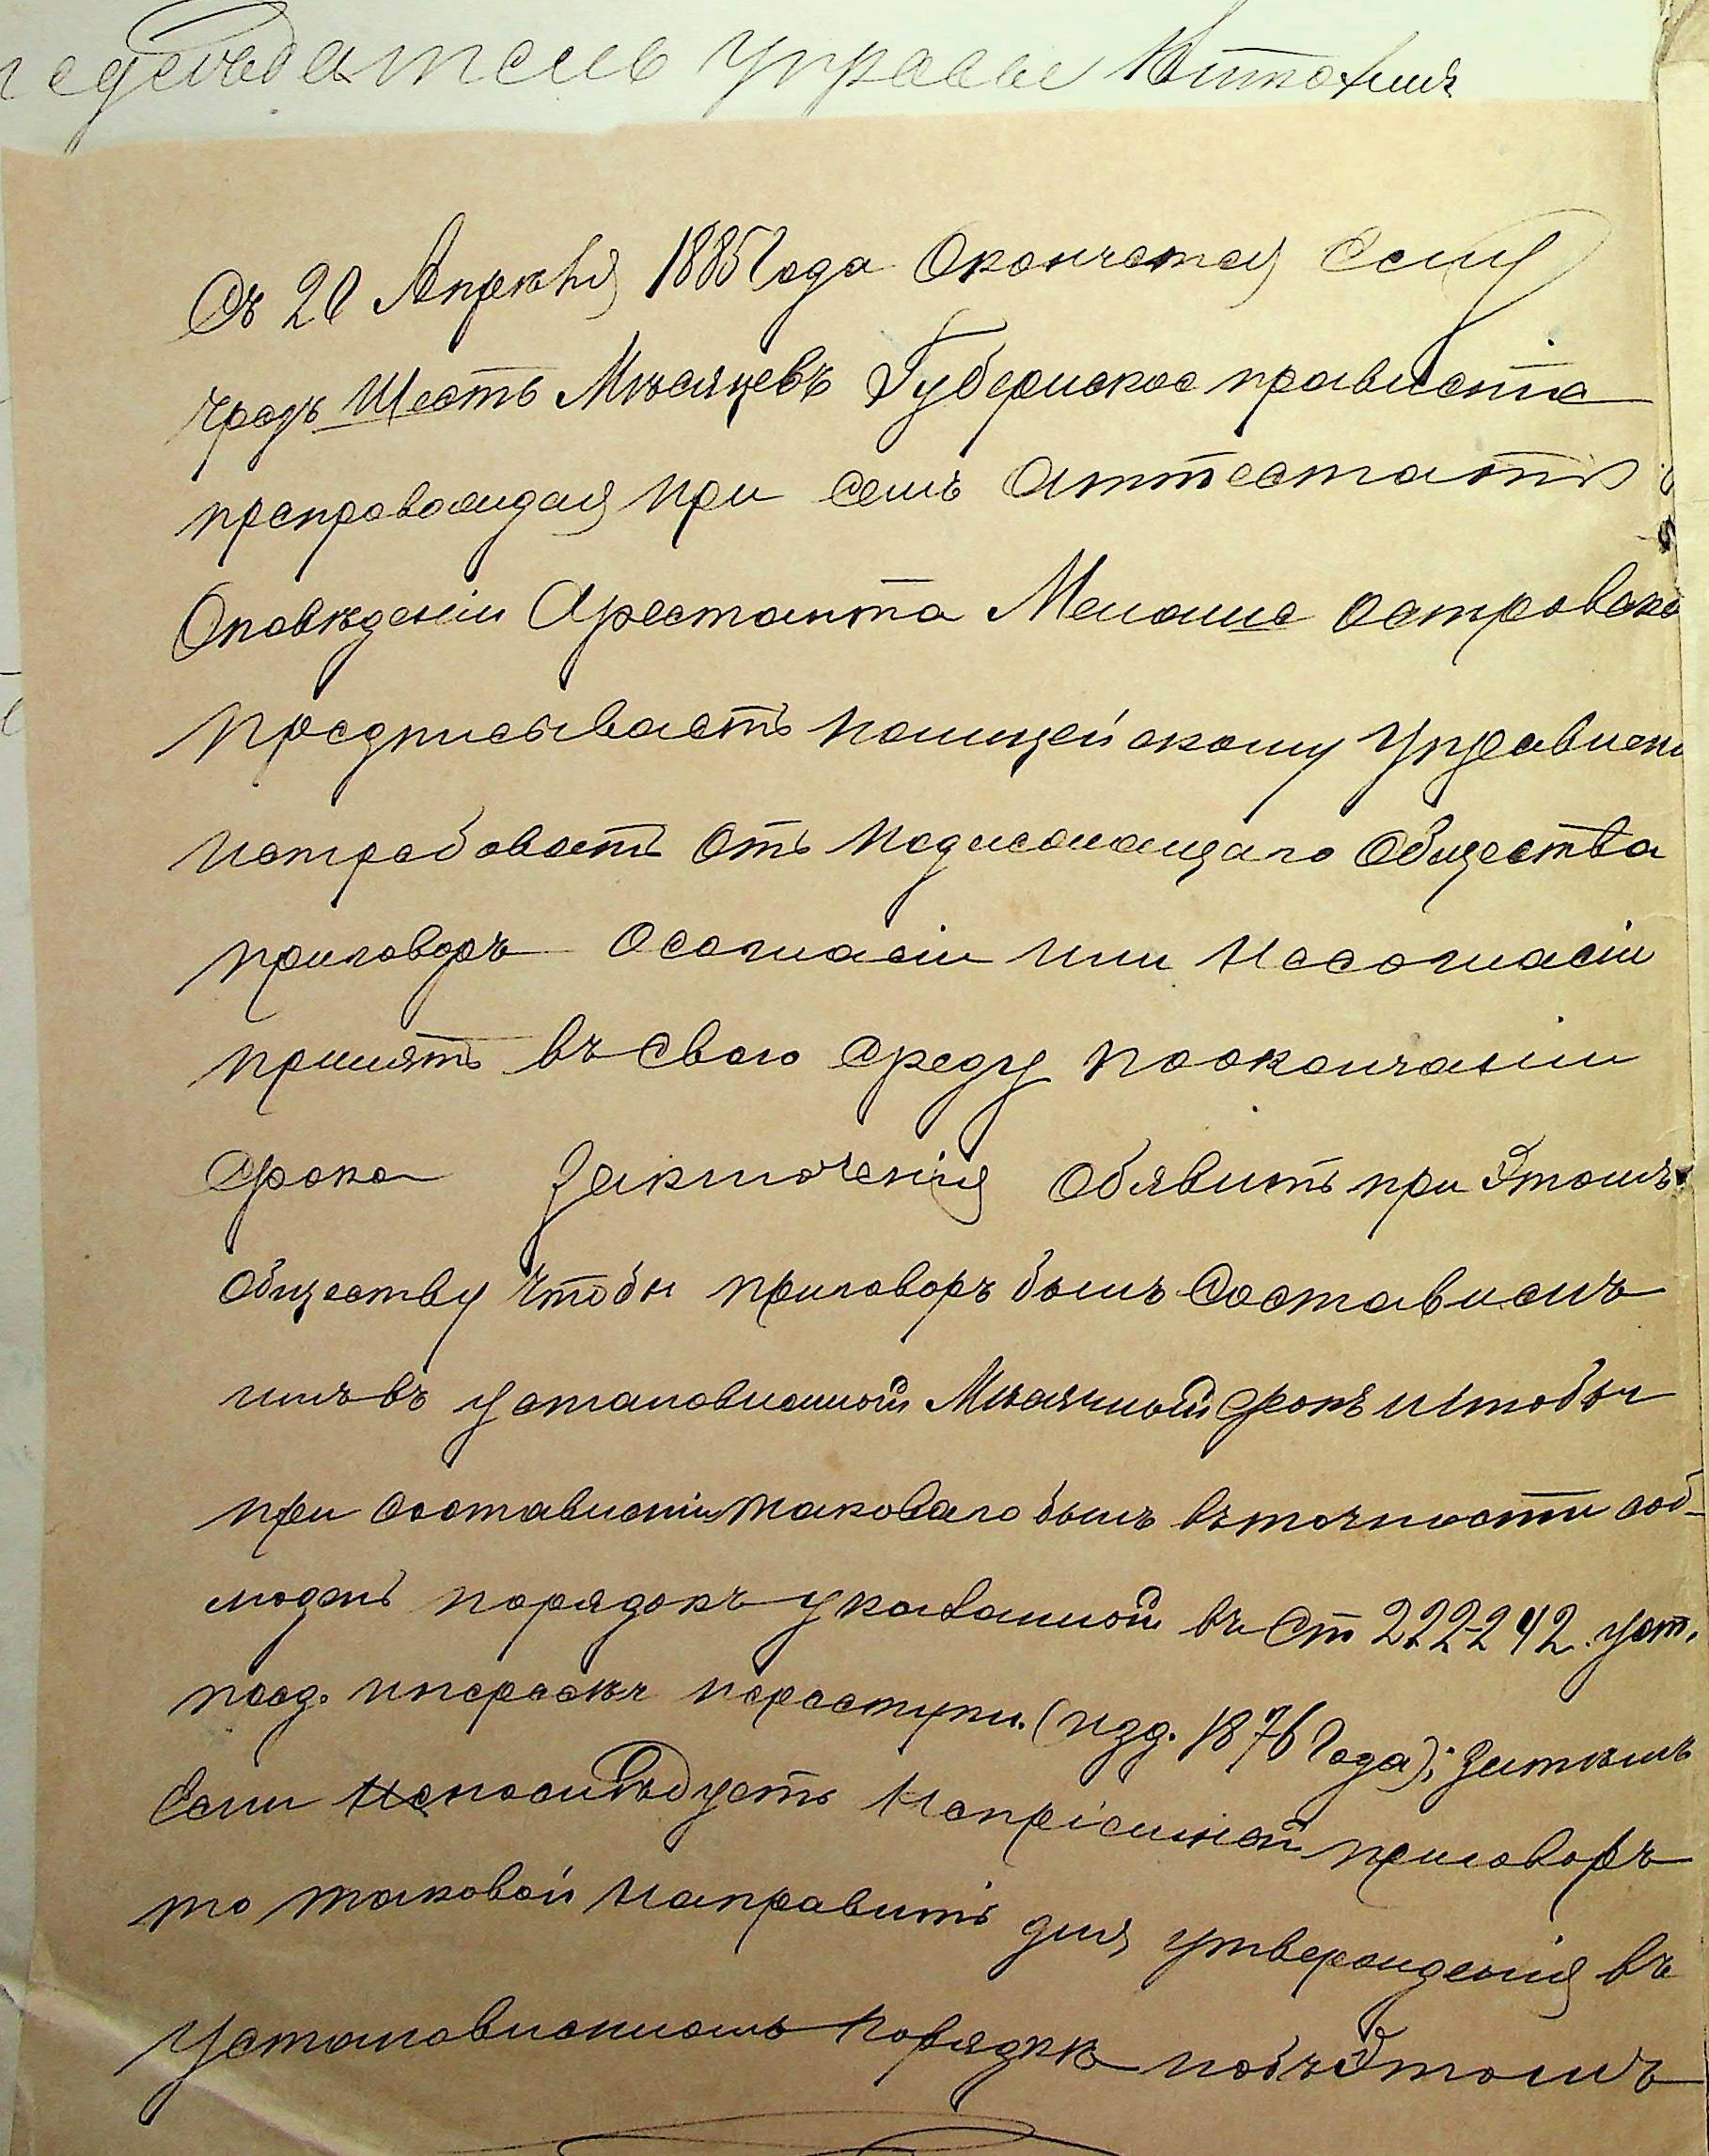 едседатель управы
Съ 20 Апрелья 1885 Года Окончется Сему
чрезъ Шесть Месяцевъ Губернское правленiе
препровождая при семъ Аттестатъ
Оповеденiи Арестанта Менаше Островска
предписываетъ полицейскому Управлен
истребовать Отъ подлежащаго Общества
приговоръ Осогласiи или Несогласiи
принять въ свою среду поокончанiи
срока Заключенiя Обявить при Этомъ
Обществу чтобы приговоръ былъ Составленъ
имъ въ установленной Месячной срокъ и чтобы
при составленiи таковаго былъ въ точности соб-
людѣнъ порядокъ указанной въ Ст 222-242. уст.
пред. и пресѣч. преступл. (изд. 1876 Года); Затемъ
Если последуетъ Непрiемной приговоръ
то таковой Направить для утвержденiя въ
Установленномъ порядкѣ и объ Этомъ